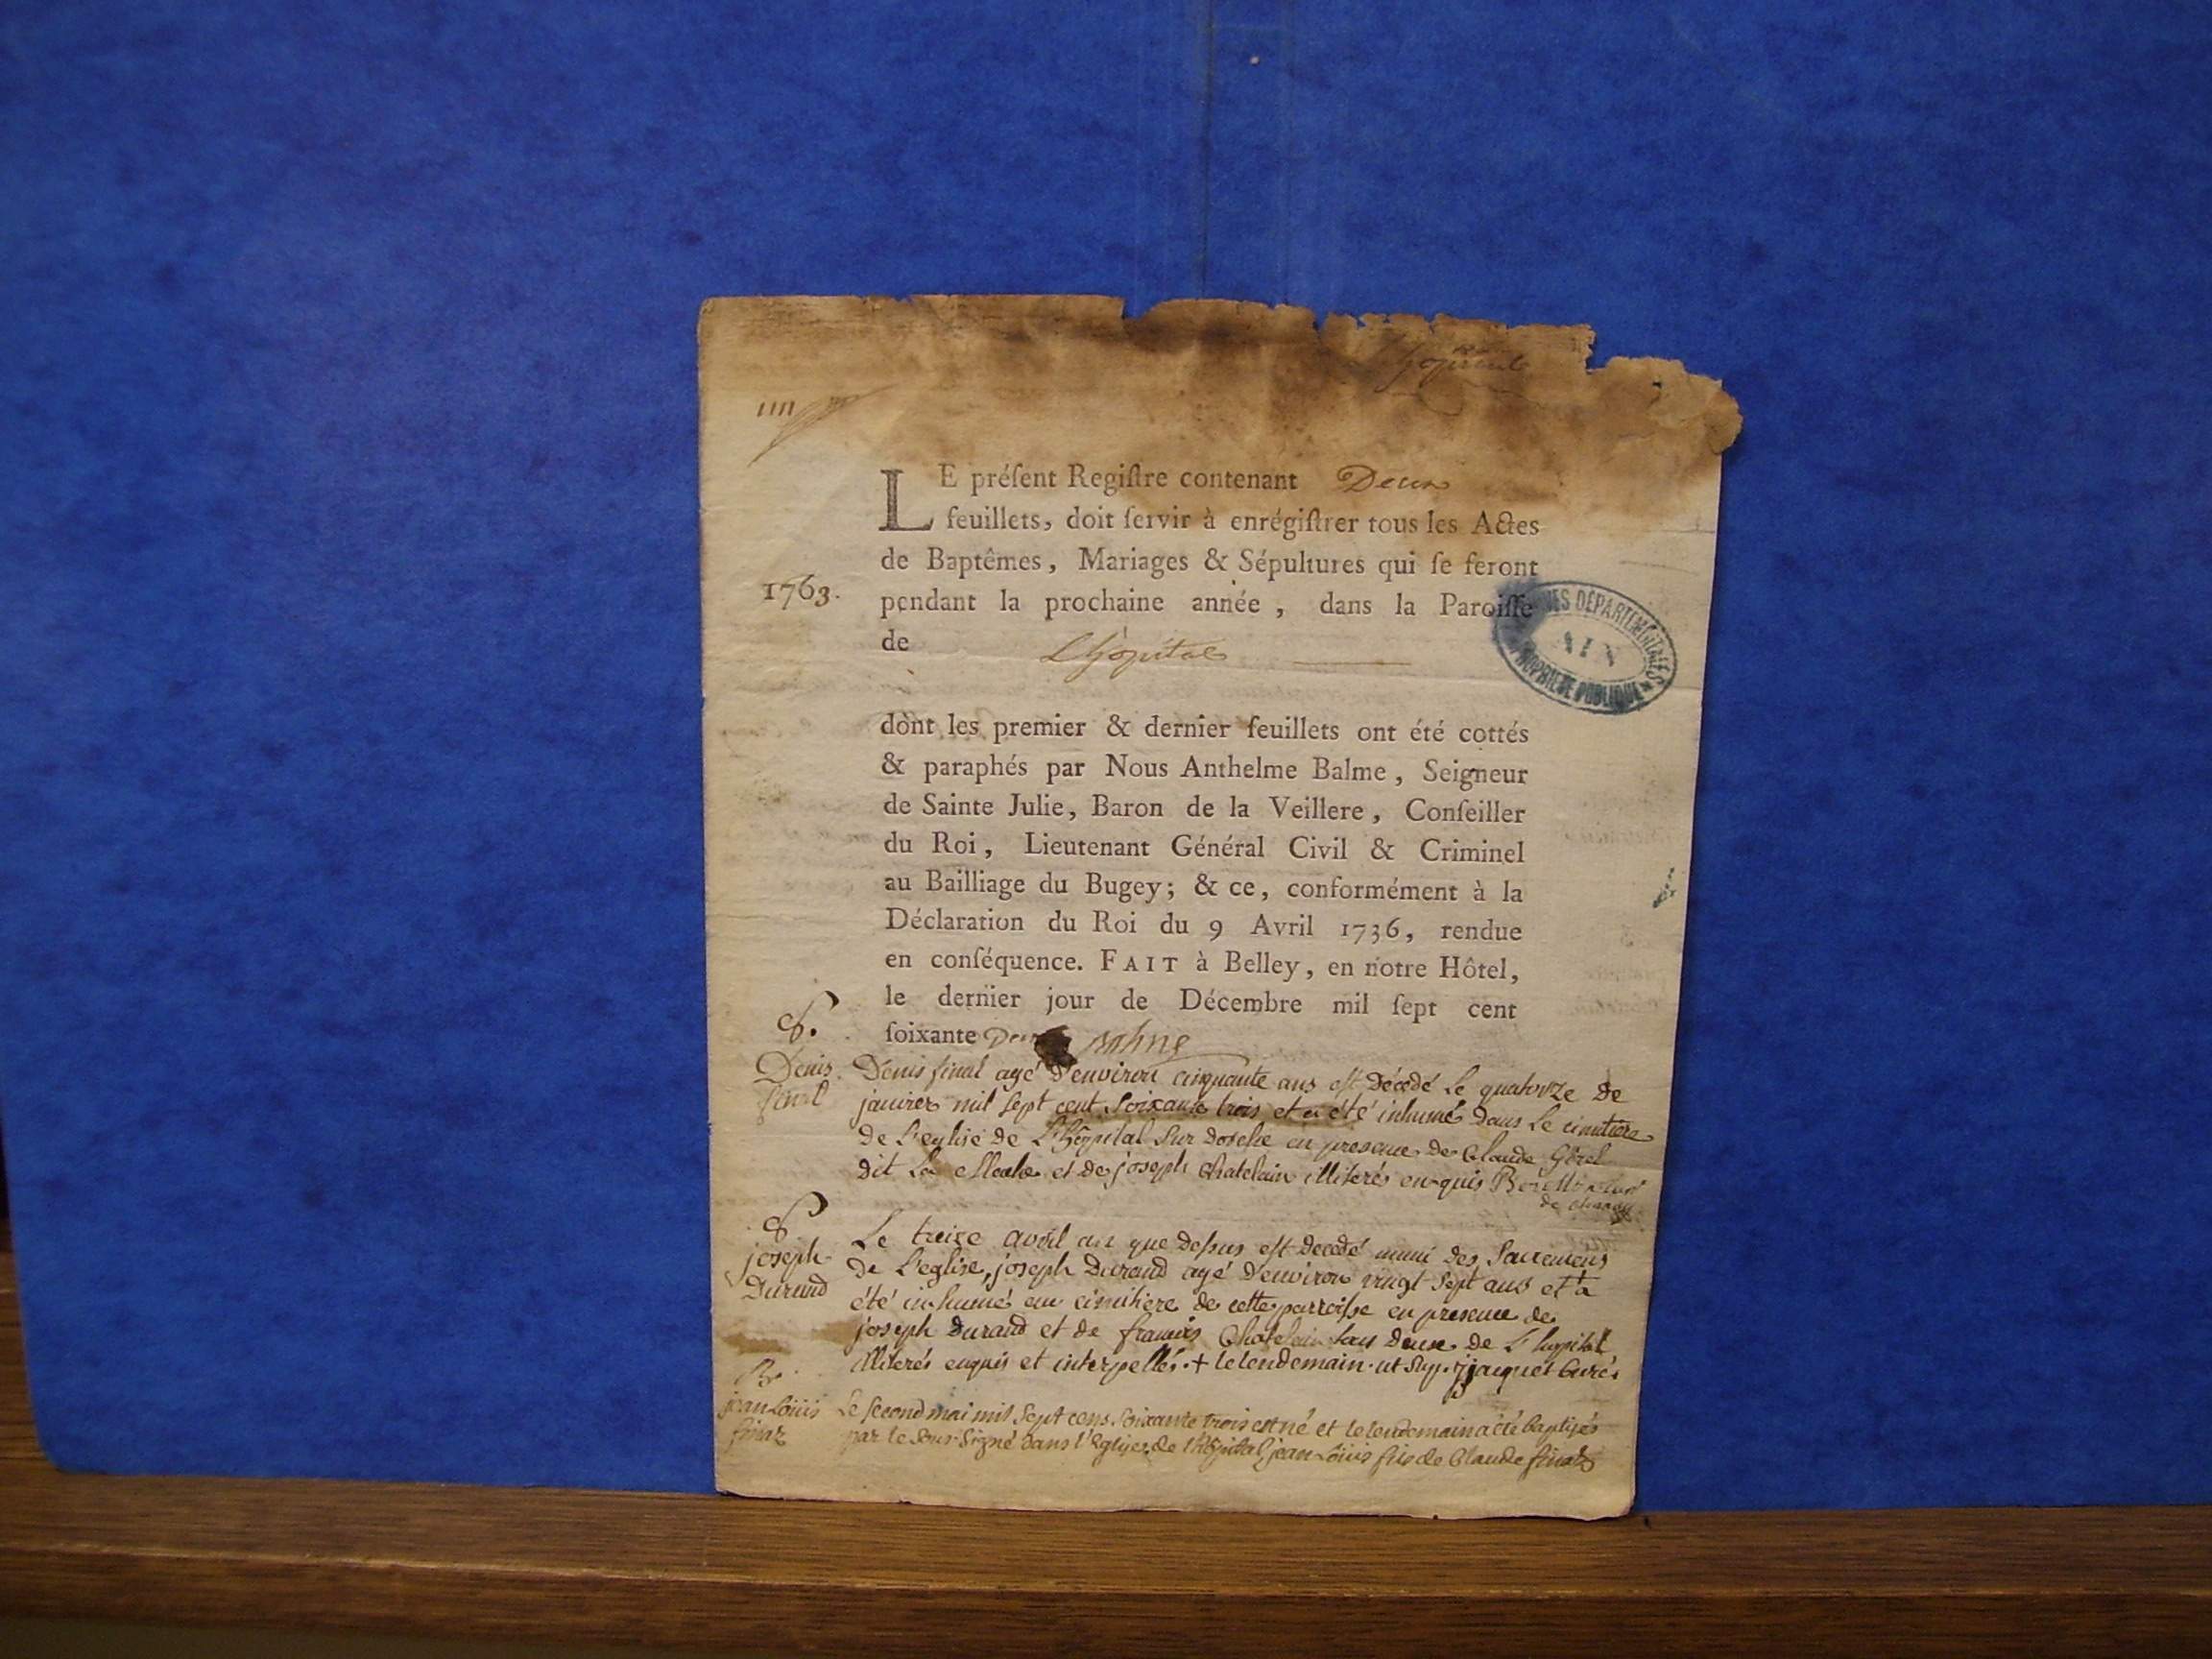 L'hôpital
1763.
LE préſent Regiſtre contenant Deux
feuillets, doit ſervir à enrégiſtrer tous les Actes
de Baptêmes, Mariages & Sépultures qui ſe feront
pendant la prochaine année, dans la Paroiſſe
de L'hôpital
ARCHIVES DEPARTEMENTALES
AIN
PROPRIETE PUBLIQUE
dont les premier & dernier feuillets ont été cottés
& paraphés par Nous Anthelme Balme, Seigneur
de Sainte Julie, Baron de la Veillere, Conſeiller
du Roi, Lieutenant Général Civil & Criminel
au Bailliage du Bugey; & ce, conformément à la
Déclaration du Roi du 9 Avril 1736, rendue
en conſéquence. FAIT à Belley, en notre Hôtel,
le dernier jour de Décembre mil ſept cent
ſoixante Deux Balme
S.
Denis
finel
Denis finel agé d'environ cinquante ans est décédé le quatorze de
janvier mil sept cent soixante trois et a été inhumé dans le cimitiere
de l'eglise de L'hôpital sur dorche en presence de Claude
dit La et de joseph Chatelain illiterés enquis
S
joseph
Durand
Le treize avril an que dessus est decedé muni des Sacremens
de L'eglise, joseph Durand agé d'environ vingt sept ans et a
été inhumé au cimitiere de cette parroisse en presence de
joseph Durand et de francois Chatelain tous deux de L'hopital
illiterés enquis et interpellés. + le lendemain. ut sup. jjacquet Curé
B.
jean Loüis
finaz
Le second mai mil sept cens soixante trois est né et le lendemain a été baptisés
par le sous-signé dans l'eglise de l'hôpital, jean Loüis fils de Claude finaz